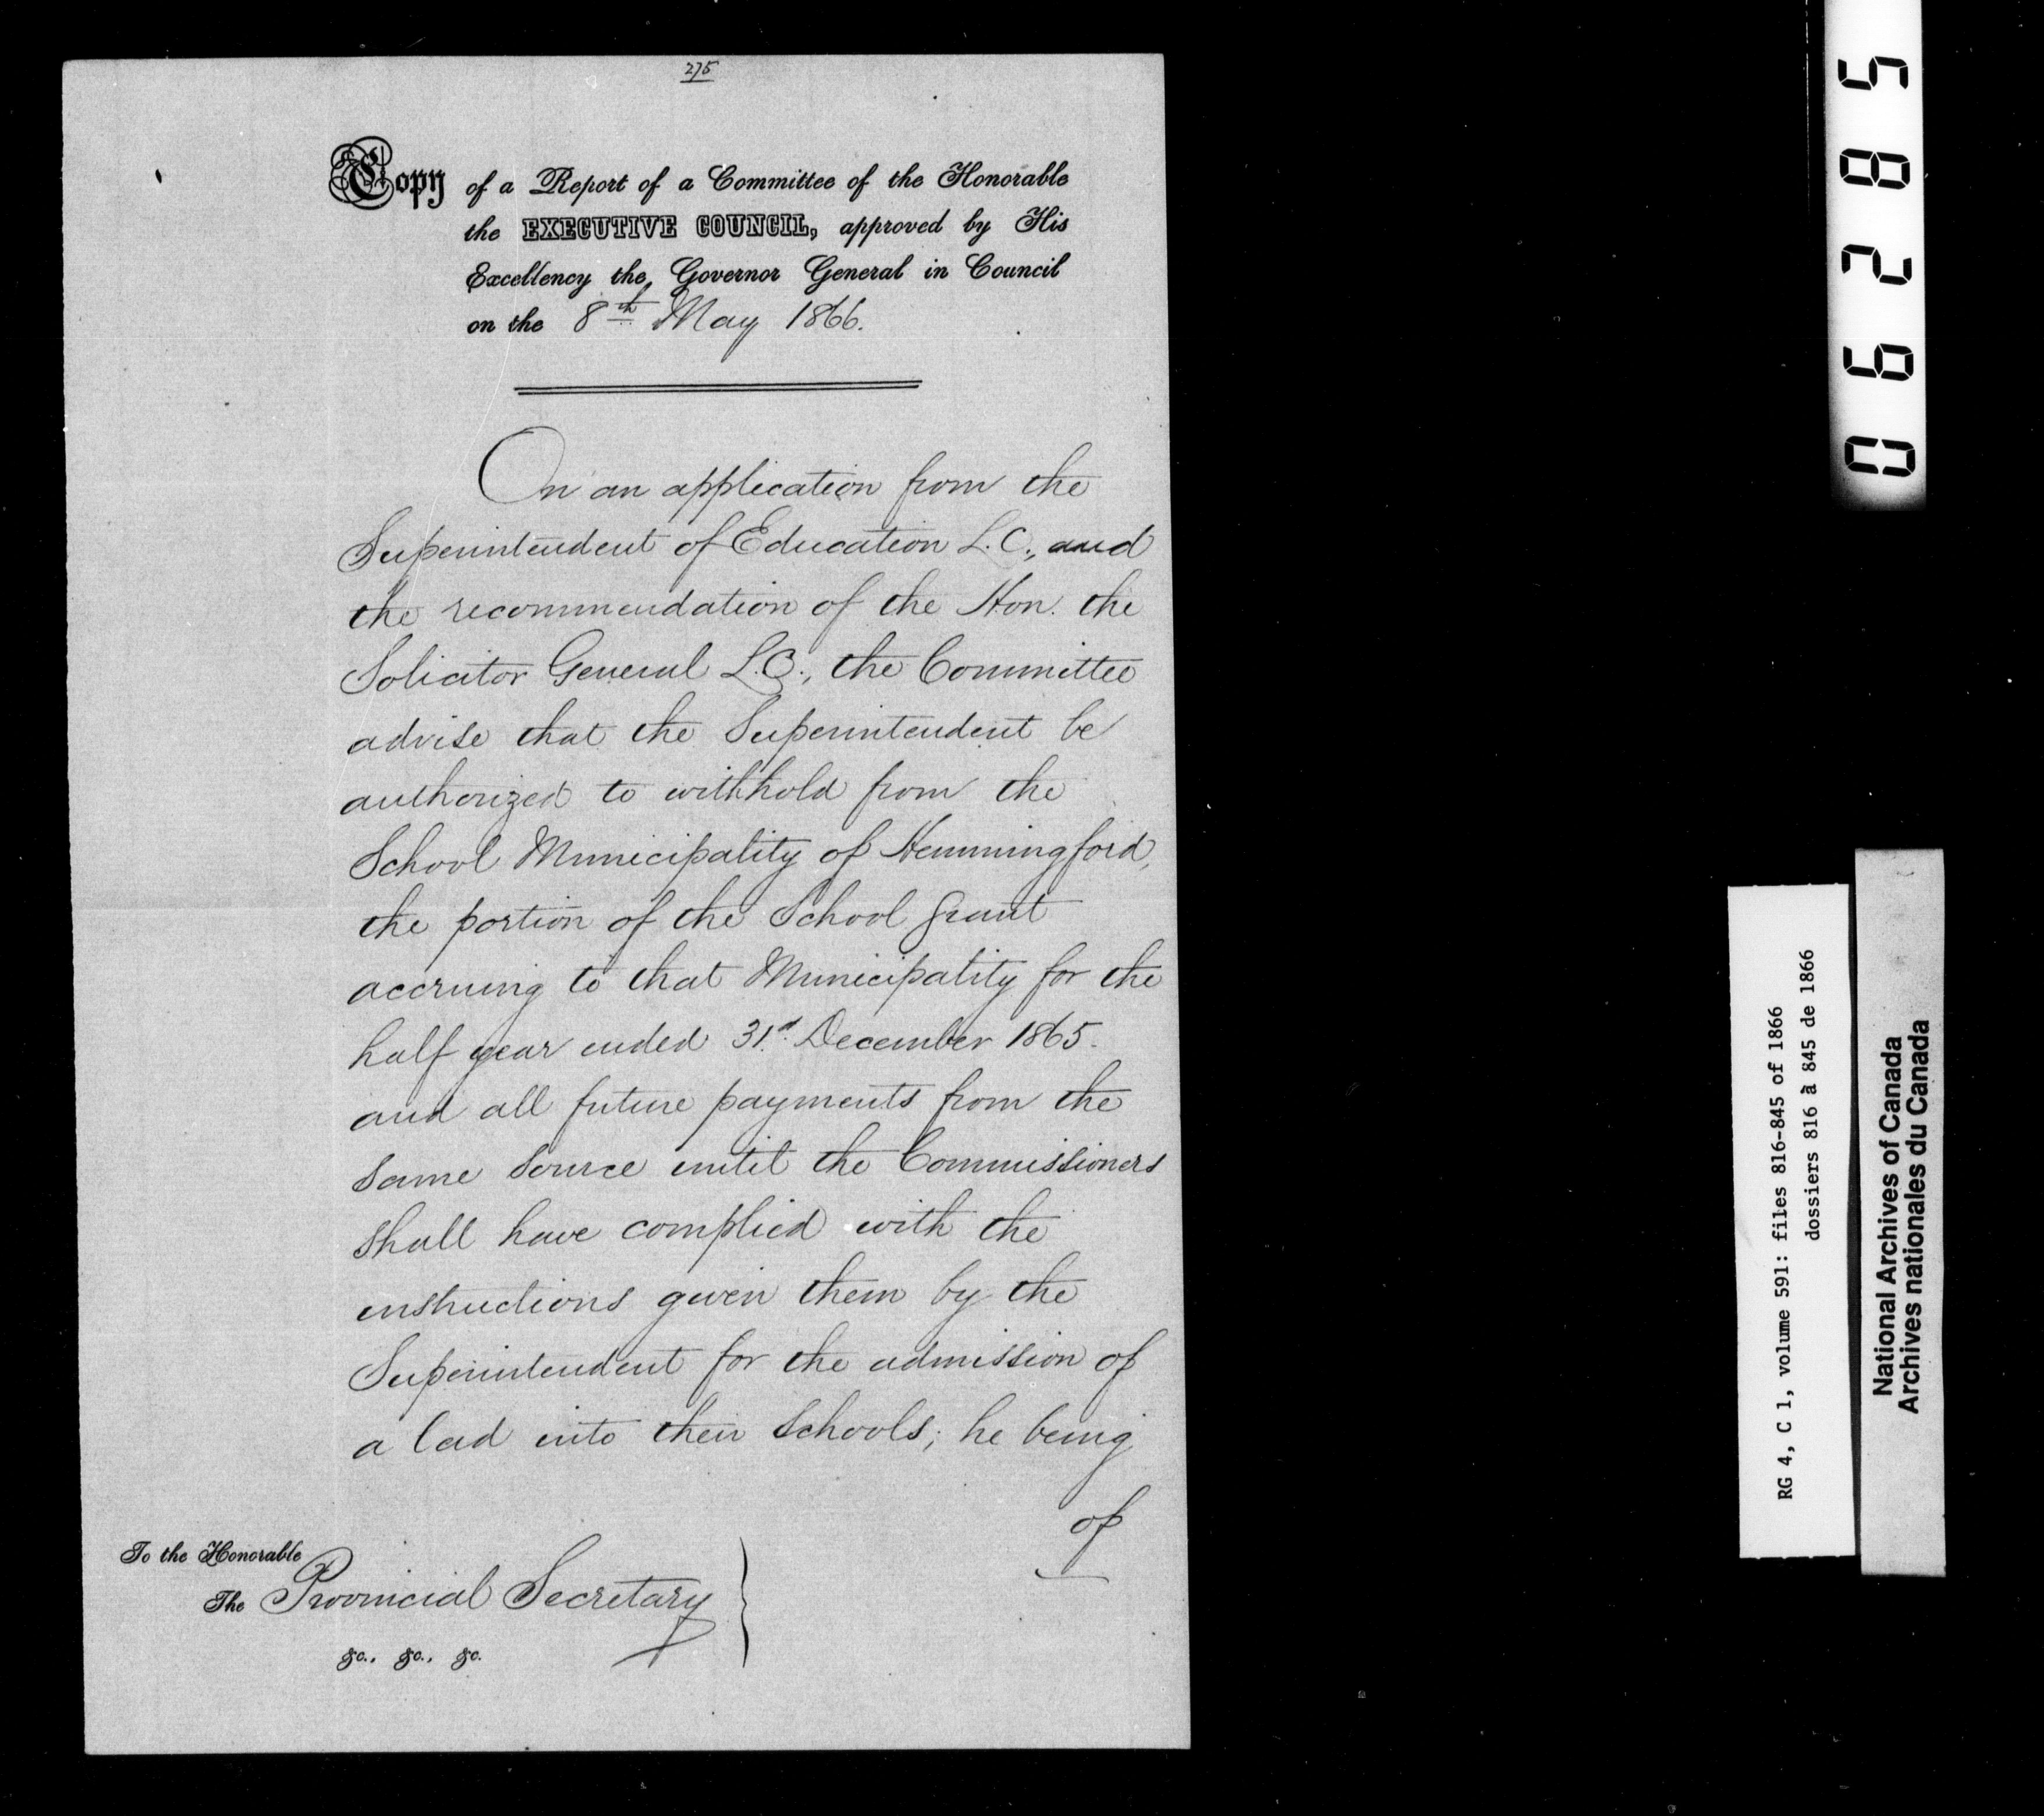 275
Copy of a Report of a Committee of the Honorable
the EXECUTIVE COUNCIL, approved by His
Excellency the Governor General in Council
on the 8th May 1866.
On an application from the
Superintendent of Education L.C., and
the recommendation of the Hon. the
Solicitor General L.C., the Committee
advise that the Superintendent be
authorized to withhold from the
School Municipality of Hemmingford,
the portion of the School Grant
accruing to that Municipality for the
half year ended 31st December 1865.
and all future payments from the
same source until the Commissioners
shall have complied with the
instructions given them by the
Superintendent for the admission of
a lad into their Schools; he being
of
To the Honorable
The Provincial Secretary
&c., &c., &c.
06285
RG 4, C 1, volume 591: files 816-845 of 1866
dossiers 816 à 845 de 1866
National Archives of Canada
Archives nationales du Canada